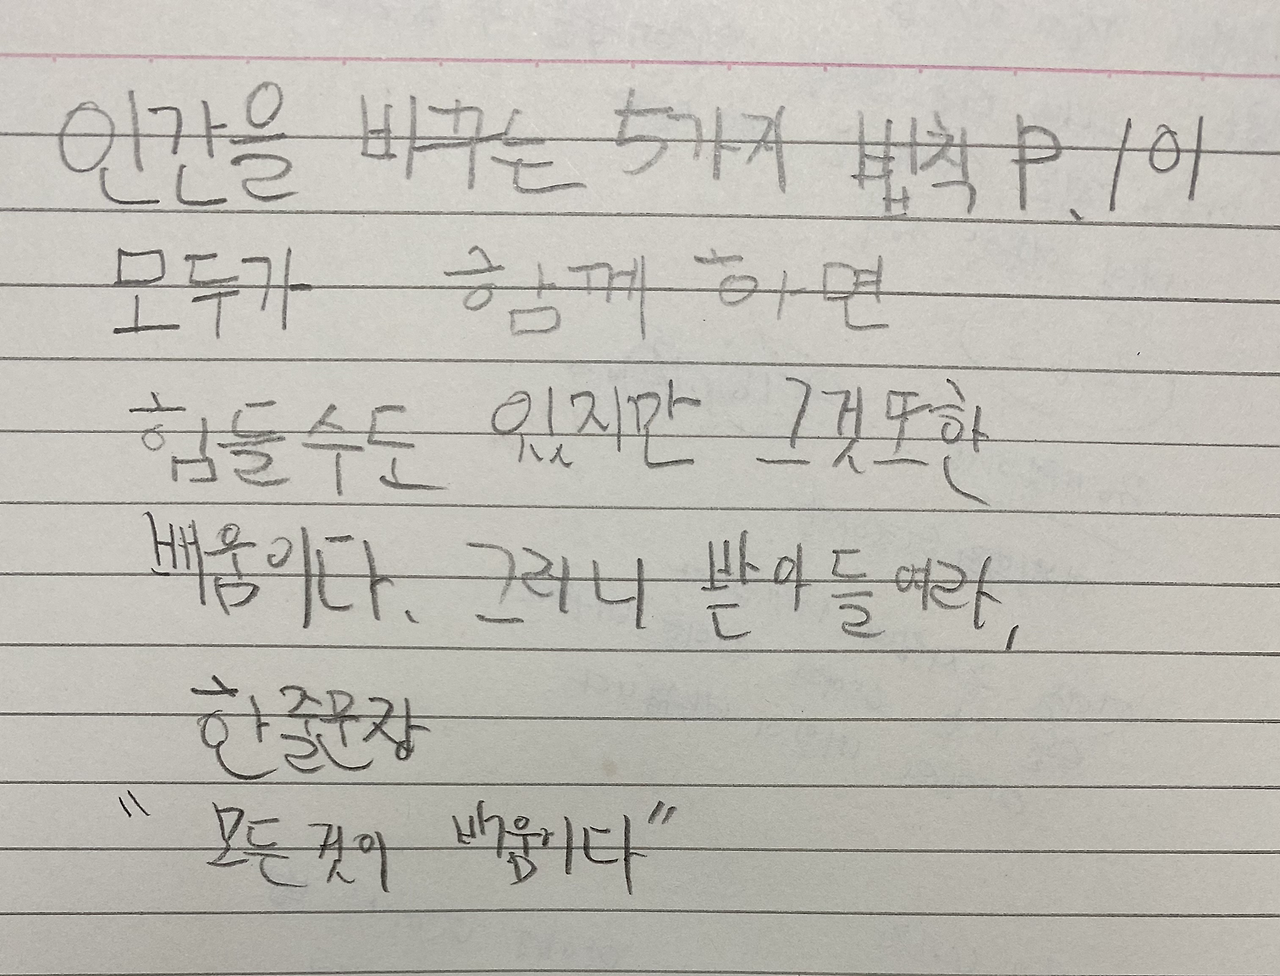 인간을 바꾸는 5가지 법칙 P.101
모두가 함께 하면
힘들수도 있지만 그것또한
배움이다. 그러니 받아들여라,
한줄문장
"모든것이 배움이다"